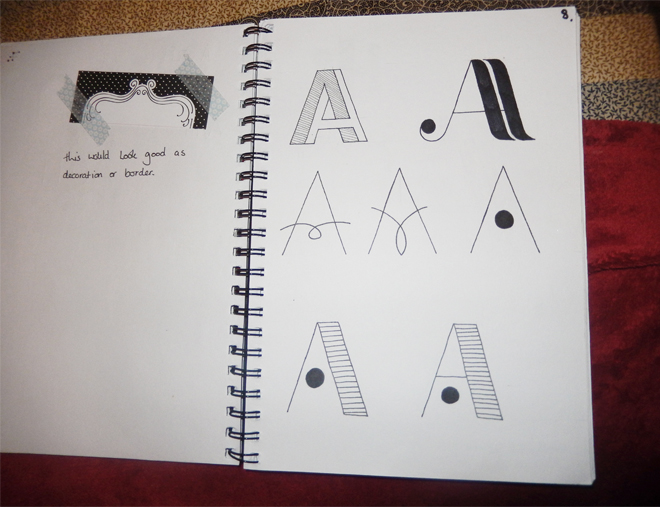 this would look good as
decoration or border.
8.
A A
A A A
A A